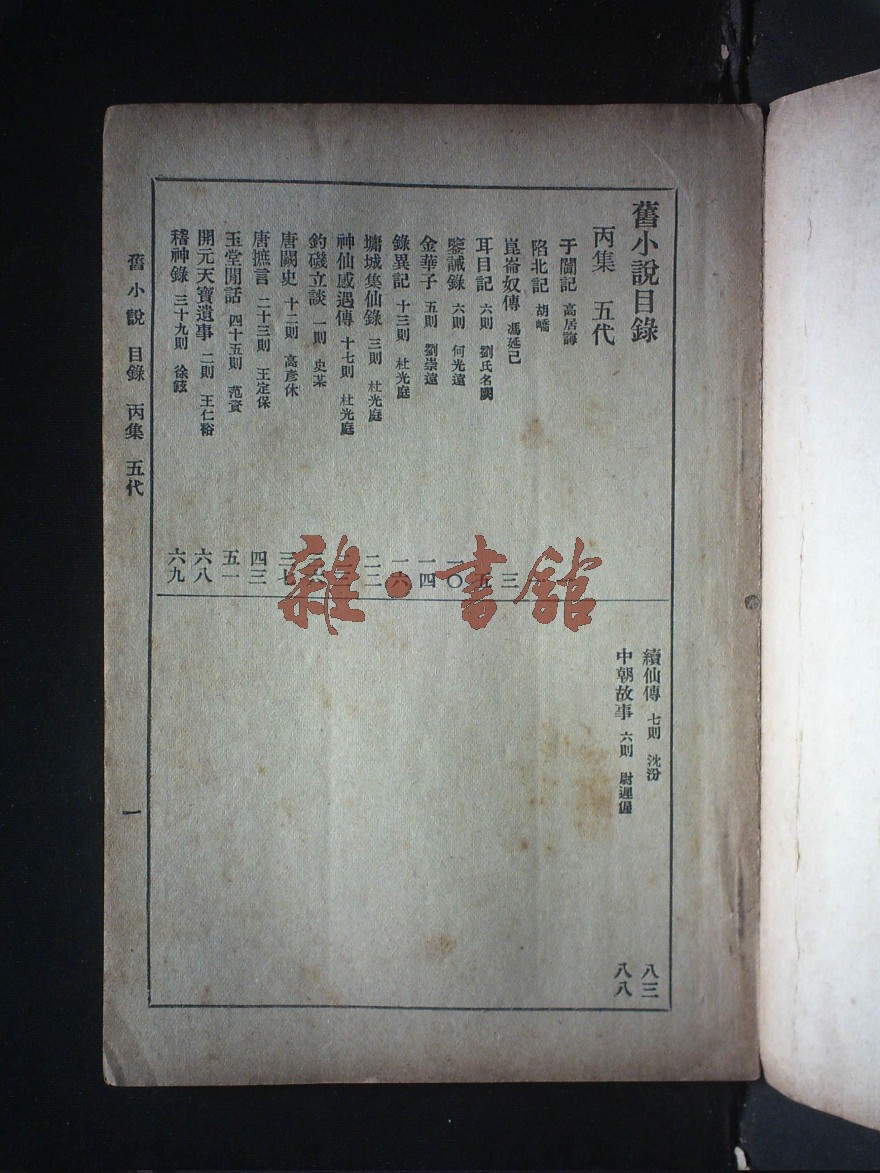 舊小說目錄
丙集 五代
于闐記 高居誨
陷北記 胡嶠
崑崙奴傳 馮延己 三
耳目記 六則 劉氏名闕 五
鑒誡錄 六則 何光遠 一〇
金華子 五則 劉崇遠 一四
錄異記 十三則 杜光庭 一六
墉城集仙錄 三則 杜光庭 二二
神仙感遇傳 十七則 杜光庭
釣磯立談 一則 史某
唐闕史 十二則 高彥休 三七
唐摭言 二十三則 王定保 四三
玉堂閒話 四十五則 范資 五一
開元天寶遺事 二則 王仁裕 六八
稽神錄 三十九則 徐鉉 六九
續仙傳 七則 沈汾 八三
中朝故事 六則 尉遲偓 八八
舊小說 目錄 丙集 五代 一
雜·書館